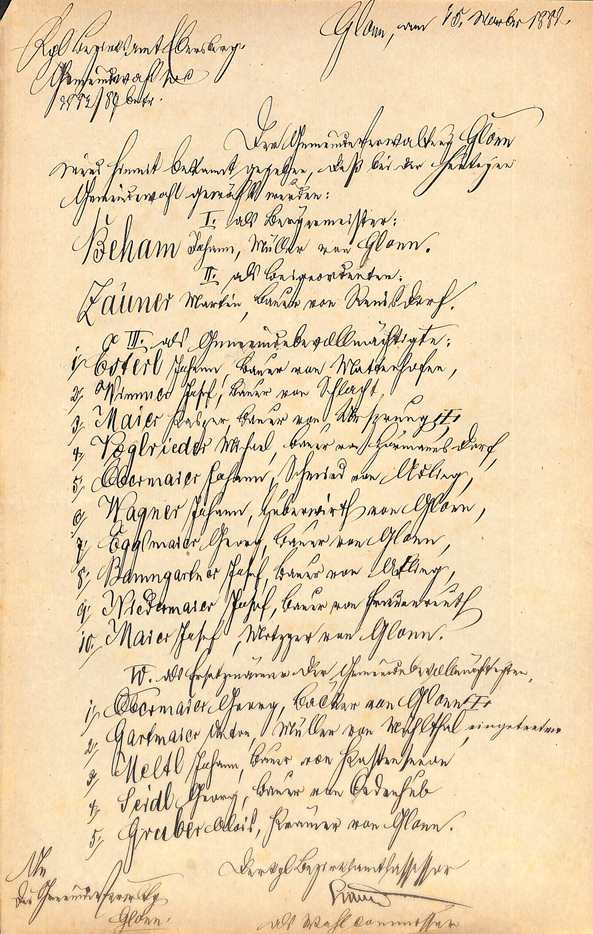 Glonn, am 15. Novbr 1881.
Kgl Bezirksamt Ebersberg.
Gemeindewahl pro
betr.
Der Gemeindeverwaltung Glonn
wird hiemit bekannt gegeben, daß bei der heutigen
Gemeindewahl gewählt wurden:
I. als Bürgermeister:
Beham Johann, Müller von Glonn.
II. als Beigeordneten:
Zäuner Martin, Bauer von Reinsdorf.
III. als Gemeindebevollmächtigte:
1, Esterl Johann, Bauer von Mattenhofen,
2, Wimmer Josef, Bauer von Schlacht,
3, Maier Kaspar, Bauer von Ursprung,
4, Voglrieder Michael, Bauer von Hermannsdorf,
5, Obermaier Johann, Schmied von Adling,
6, Wagner Johann, Huberwirth von Glonn,
7, Eggmaier Georg, Bauer von Glonn,
8, Baumgartner Josef, Bauer von Adling,
9, Niedermaier Josef, Bauer von Frauenreuth
10, Maier Josef, Metzger von Glonn.
IV. als Ersatzmänner der Gemeindebevollmächtigten,
1, Obermaier Georg, Bäcker von Glonn
2, Gartmaier Anton, Müller von Mühlthal, eingetreten
3, Meltl Johann, Bauer von Kastenseeon
4, Seidl Georg, Bauer von Oedenhub
5, Gruber Alois, Krämer von Glonn.
Der kgl Bezirksamtsassessor
An
die Gemeindeverwaltg
Glonn.
als Wahlcommissär